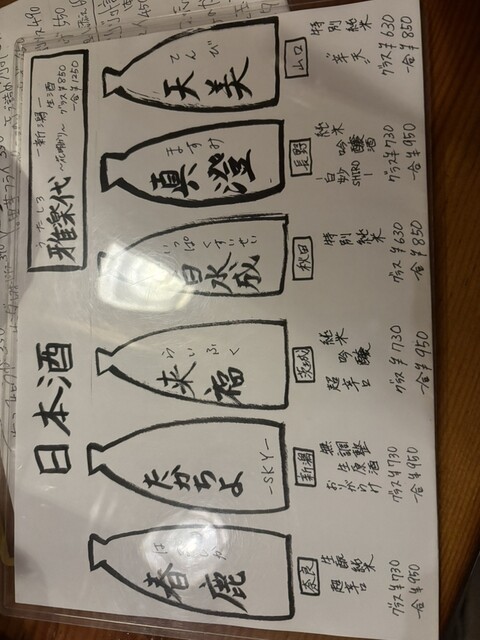 日本酒
うたしろ
雅楽代
－新潟－
生酒
グラス¥850
一合¥1250
てんび
天美
山口
特別純米
グラス¥630
一合¥850
ますみ
真澄
長野
純米吟醸酒
－白妙SHIRO－
グラス¥730
一合¥950
いっぱくすいせい
白水成
秋田
特別純米
グラス¥630
一合¥850
らいふく
来福
茨城
純米吟醸
超辛口
グラス¥730
一合¥950
たかちよ
-SKY-
新潟
無調整
生原酒
おりがらけ
グラス¥730
一合¥950
春鹿
奈良
生酛純米
超辛口
グラス¥730
一合¥950